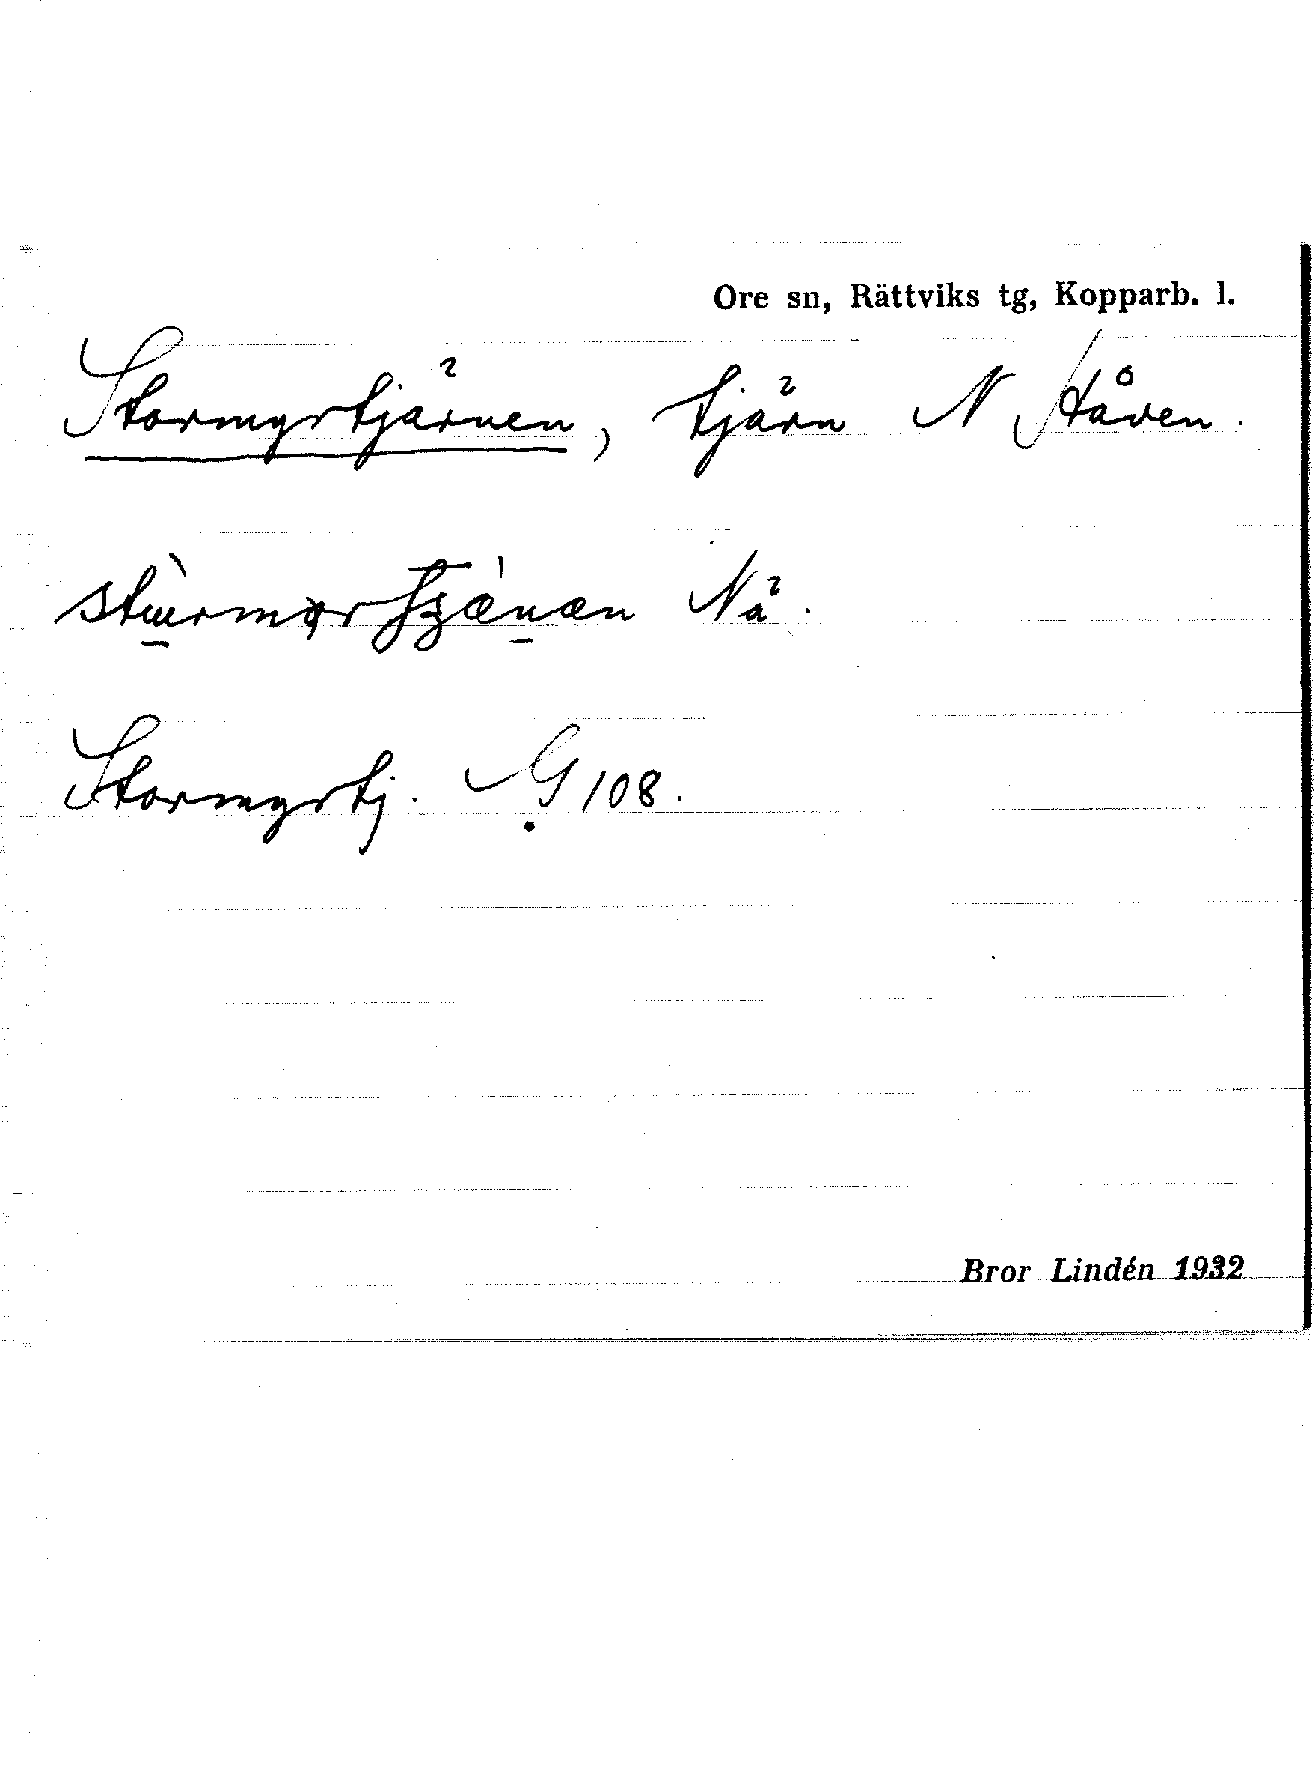 Ore sn, Rättviks tg, Kopparb. l.
Stormyrtjärnen, tjärn N Håven.
Nä.
Stormyrtj. G 108.
Bror Lindén 1932